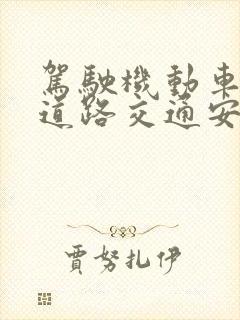 駕駛機動車
道路交通安
賈努扎伊